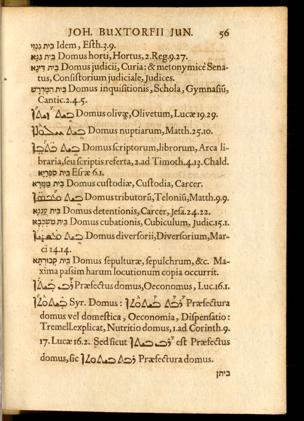 JOH. BUXTORFII JUN. 56
בית גנזי Idem, Esth.3.9.
בית גנא Domus horti, Hortus, 2.Reg.9.27.
בית דינא Domus judicii, Curia: & metonymicè Sena-
tus, Consistorium judiciale, Judices.
בית המדרש Domus inquisitionis, Schola, Gymnasiũ,
Cantic.2.4.5.
Domus olivæ, Olivetum, Lucæ 19.29.
Domus nuptiarum, Matth.25.10.
Domus scriptorum, librorum, Arca li-
braria, seu scriptis referta, 2.ad Timoth.4.13. Chald.
בית ספריא Esræ 6.1.
בית מטרא Domus custodiæ, Custodia, Carcer.
Domus tributorũ, Teloniũ, Matth.9.9.
Domus detentionis, Carcer, Jesa.24.22.
בית משכבא Domus cubationis, Cubiculum, Judic.15.1.
Domus diversorii, Diversorium, Mar-
ci 14.14.
בית קבורתא Domus sepulturæ, sepulchrum, &c. Ma-
xima passim harum locutionum copia occurrit.
Præfectus domus, Oeconomus, Luc.16.1.
Syr. Domus: Præfectura
domus vel domestica, Oeconomia, Dispensatio:
Tremell. explicat, Nutritio domus, 1.ad Corinth.9.
17. Lucæ 16.2. Sed sicut est Præfectus
domus, sic Præfectura domus.
ביתן